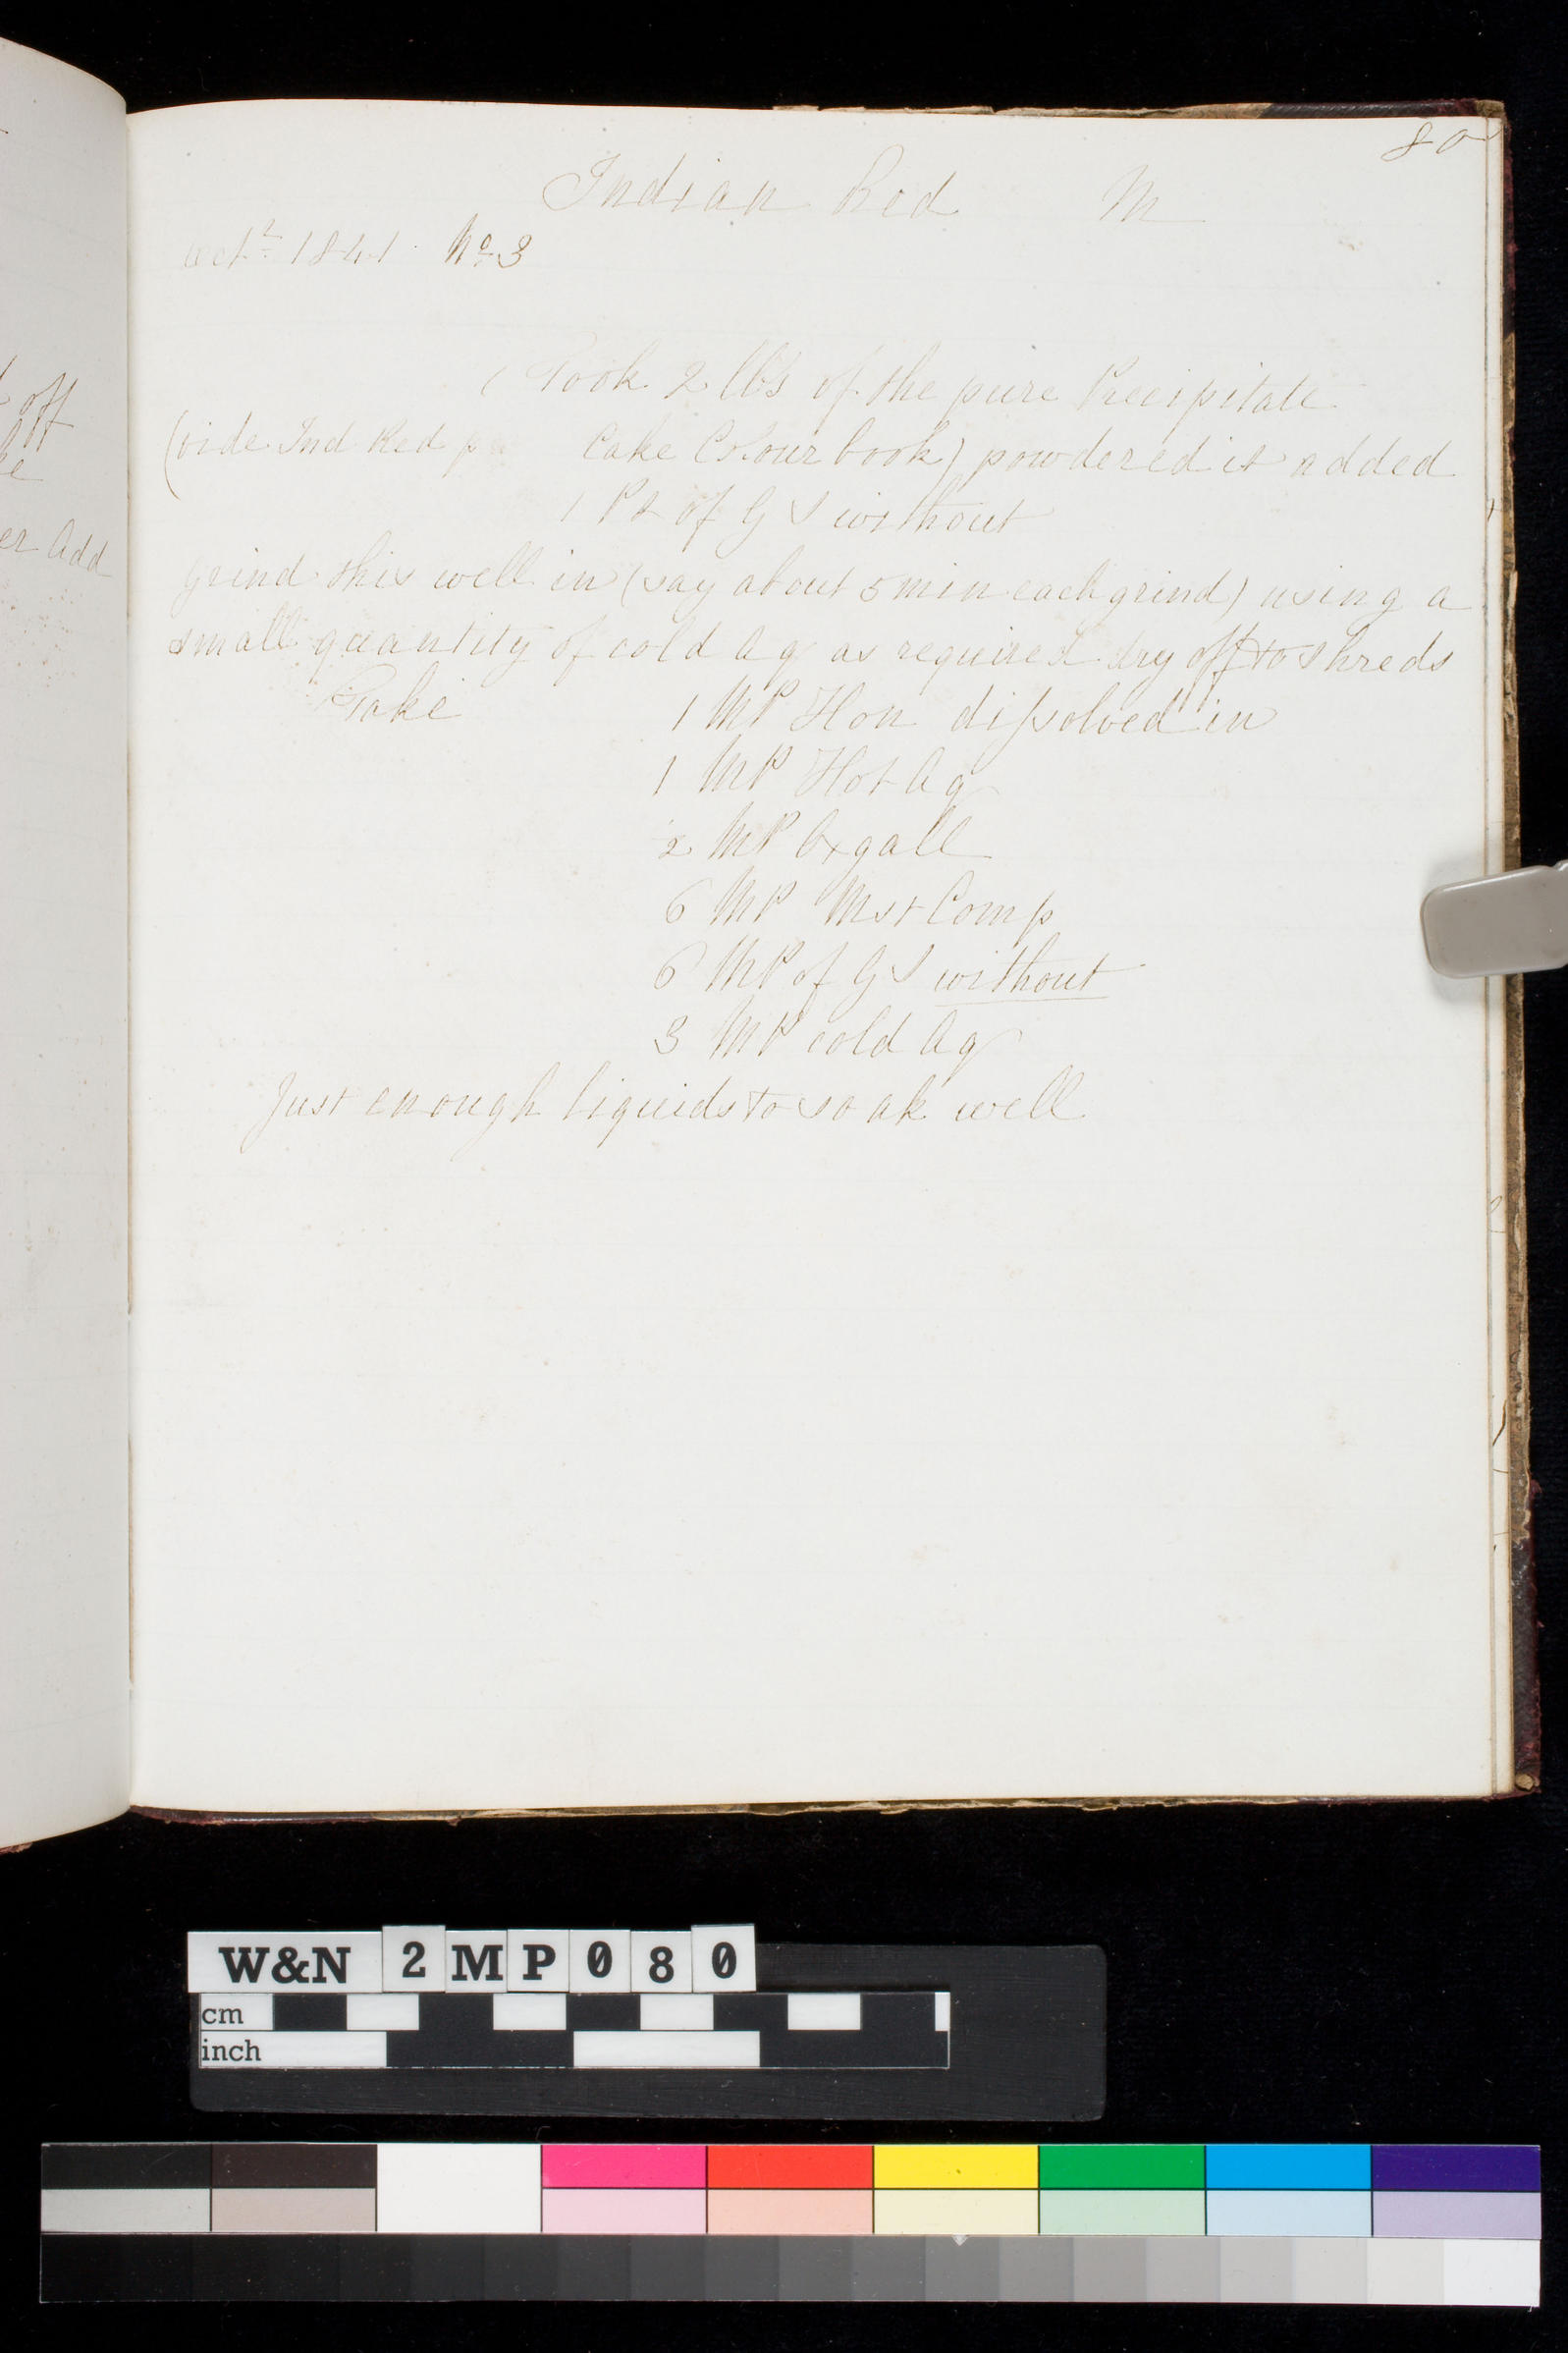 80
Indian Red M
Oct 2 1841 No 3
Took 2 lbs of the pure Precipitate
(vide Ind Red p Cake Colour book) powdered it added
1 Pt of G S without
grind this well in (say about 5 min each grind) using a
small quantity of cold Aq as required dry off to shreds
Take 1 MP Hon dissolved in
1 MP Hot Aq
2 MP Oxgall
6 MP Mst Comp
6 MP of G S without
3 MP cold Aq
Just enough liquids to soak well
off
er Add
W&N 2MP080
cm
inch